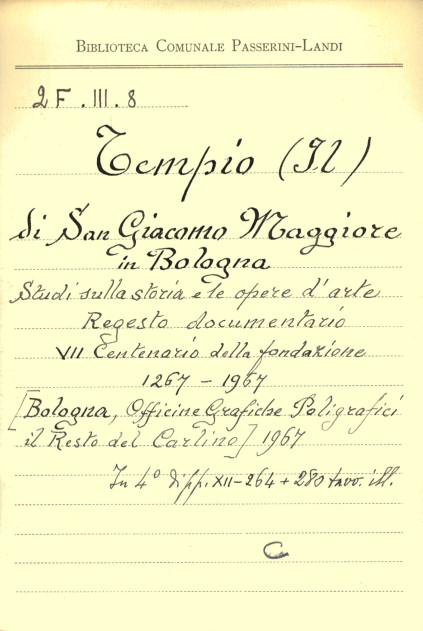 BIBLIOTECA COMUNALE PASSERINI-LANDI
2F.III.8
Tempio (Il)
di San Giacomo Maggiore
in Bologna
Studi sulla storia e le opere d'arte
Regesto documentario
VII Centenario della fondazione
1267 - 1967
[Bologna, Officine Grafiche Poligrafici
il Resto del Carlino] 1967
In 4° di pp. XII-264 + 280 tavv. ill.
C